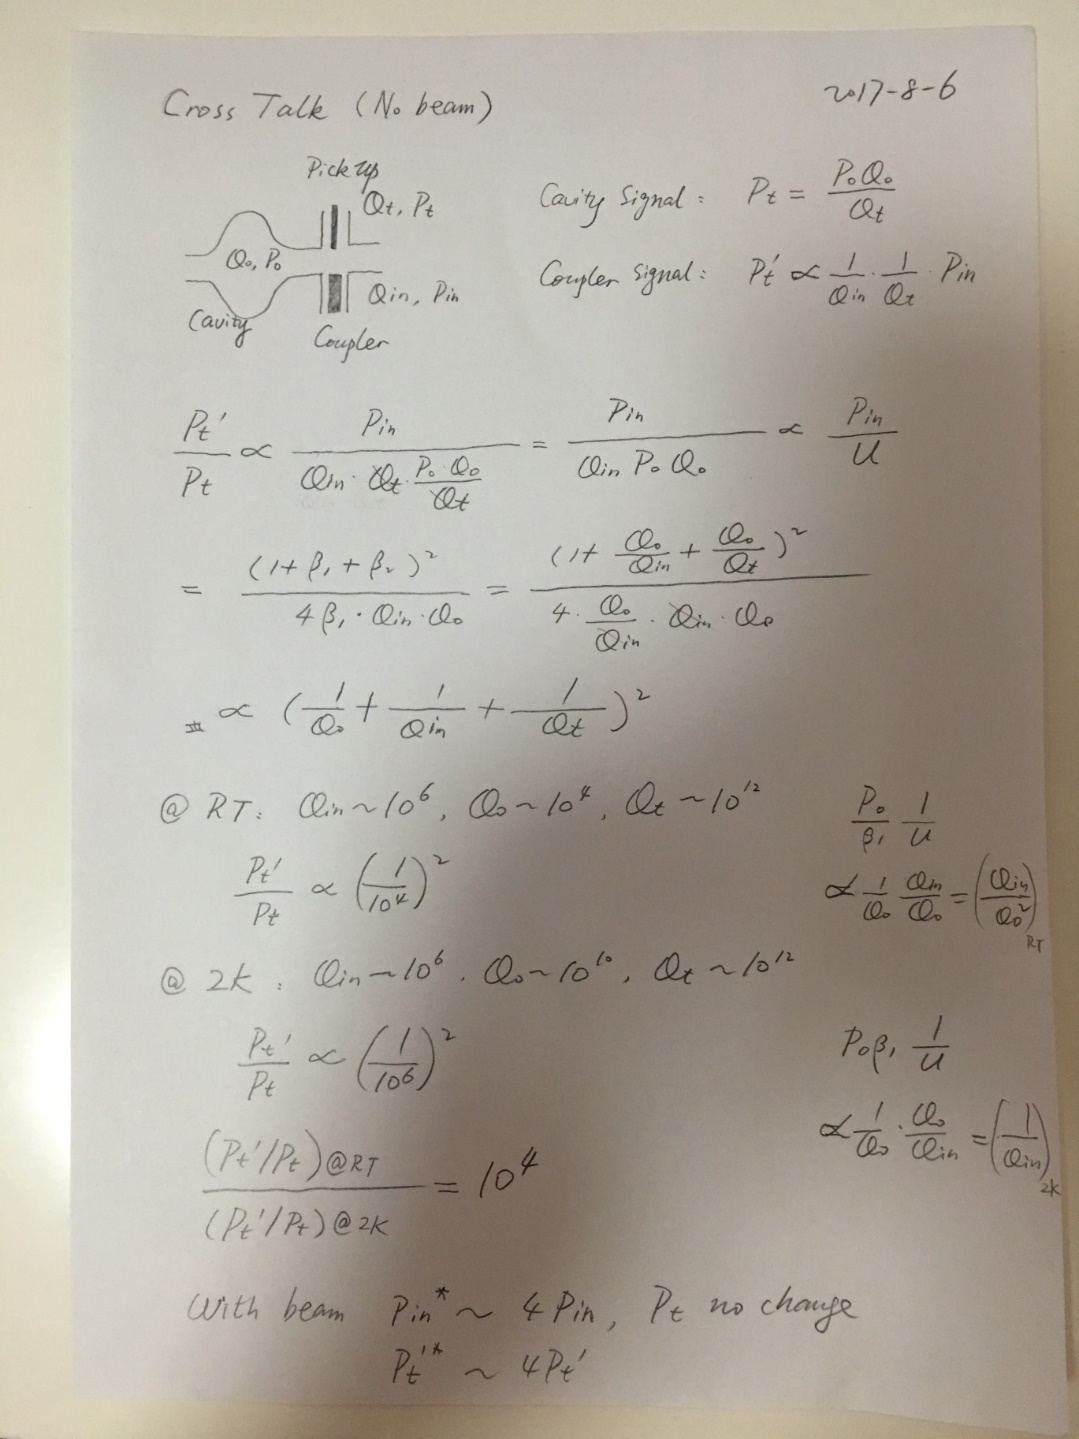 Cross Talk (No beam) 2017-8-6
Pick up
Qt, Pt
Q₀, P₀
Qin, Pin
Cavity
Coupler
Cavity Signal: Pt = P₀Q₀/Qt
Coupler Signal: Pt' ∝ 1/Qin · 1/Qt · Pin
Pt'/Pt ∝ Pin/(Qin · Qt · P₀·Q₀/Qt) = Pin/(Qin P₀ Q₀) ∝ Pin/U
= (1+β₁+β₂)²/(4β₁·Qin·Q₀) = (1+Q₀/Qin+Q₀/Qt)²/(4·Q₀/Qin·Qin·Q₀)
∝ (1/Q₀ + 1/Qin + 1/Qt)²
@ RT: Qin~10⁶, Q₀~10⁴, Qt~10¹²
Pt'/Pt ∝ (1/10⁴)²
P₀/β₁ 1/U
∝ 1/Q₀ Qin/Q₀ = (Qin/Q₀²)RT
@ 2K: Qin~10⁶. Q₀~10¹⁰, Qt~10¹²
Pt'/Pt ∝ (1/10⁶)²
P₀β₁ 1/U
∝ 1/Q₀ · Q₀/Qin = (1/Qin)2K
(Pt'/Pt)@RT/(Pt'/Pt)@2K = 10⁴
With beam Pin* ~ 4Pin, Pt no change
Pt'* ~ 4Pt'